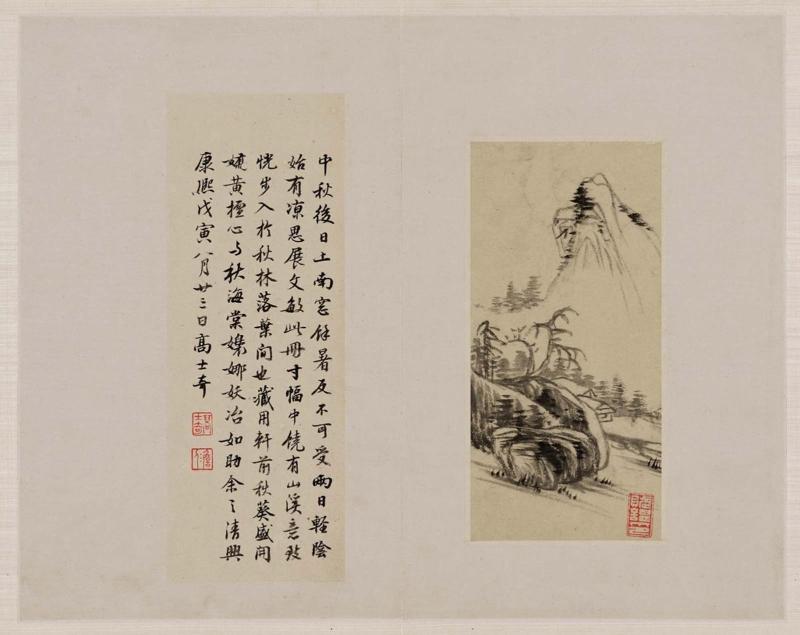 中秋後日上南窓餘暑反不可受兩日輕陰
始有凉思展文敏此冊寸幅中饒有山溪意致
恍步入於秋林落葉間也藏用軒前秋葵盛開
嬌黃檀心与秋海棠嬝娜妖冶如助余之清興
康熙戊寅八月廿三日高士奇